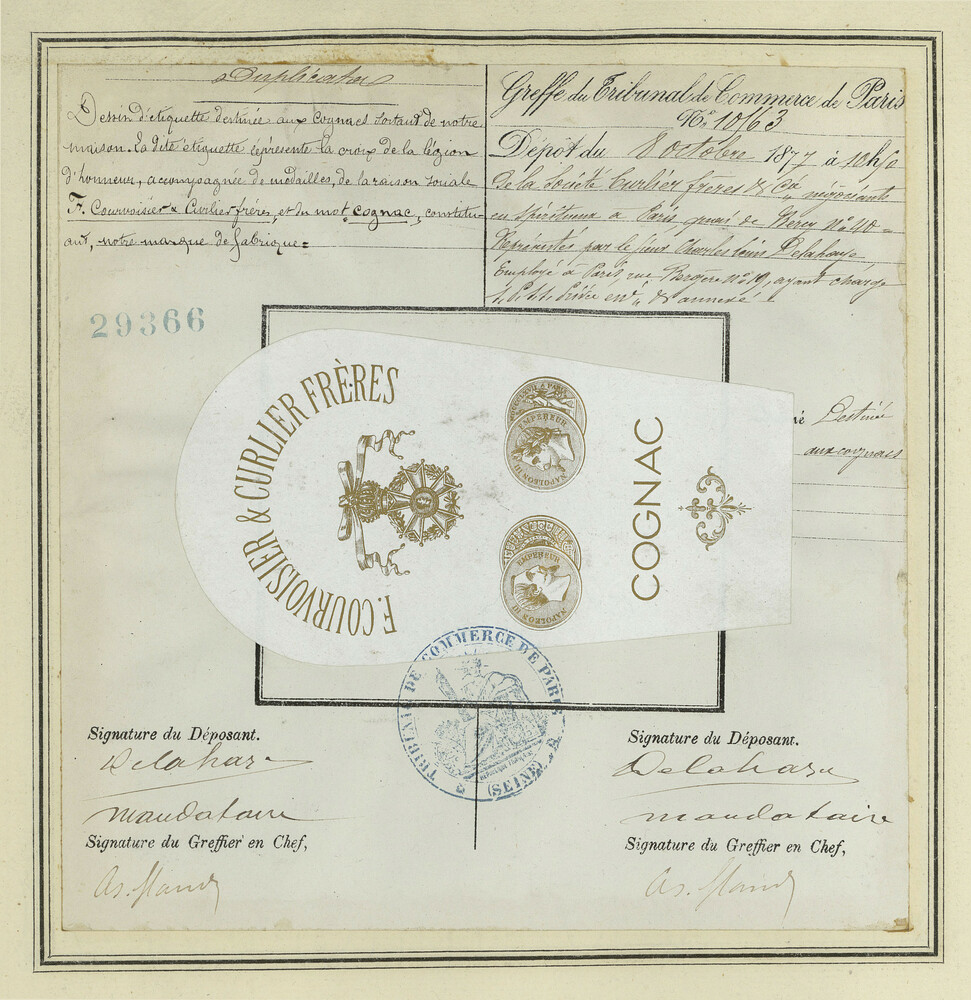 Duplicata
Dessin d'étiquette destinée aux Cognacs sortant de notre
maison. La dite étiquette représente la croix de la légion
d'honneur, accompagnée de médailles, de la raison sociale
F. Courvoisier & Curlier frères, et du mot cognac, constitu-
ant, notre marque de fabrique =
Greffe du Tribunal de Commerce de Paris
No. 10763
Dépôt du 8 octobre 1877 à 10h
de la Société Curlier frères & Cie négociants
en spiritueux à Paris, quai de Bercy No. 40 =
Représentés par le sieur Charles Louis Delahaye
Employé à Paris, rue Bergère no 19, ayant charge
29366
F. COURVOISIER & CURLIER FRÈRES
EMPEREUR
NAPOLEON III
EMPEREUR
NAPOLEON III
COGNAC
Destinée
aux cognacs
TRIBUNAL DE COMMERCE DE PARIS
(SEINE)
Signature du Déposant.
Delahaye
mandataire
Signature du Greffier en Chef,
Signature du Déposant.
Delahaye
mandataire
Signature du Greffier en Chef,